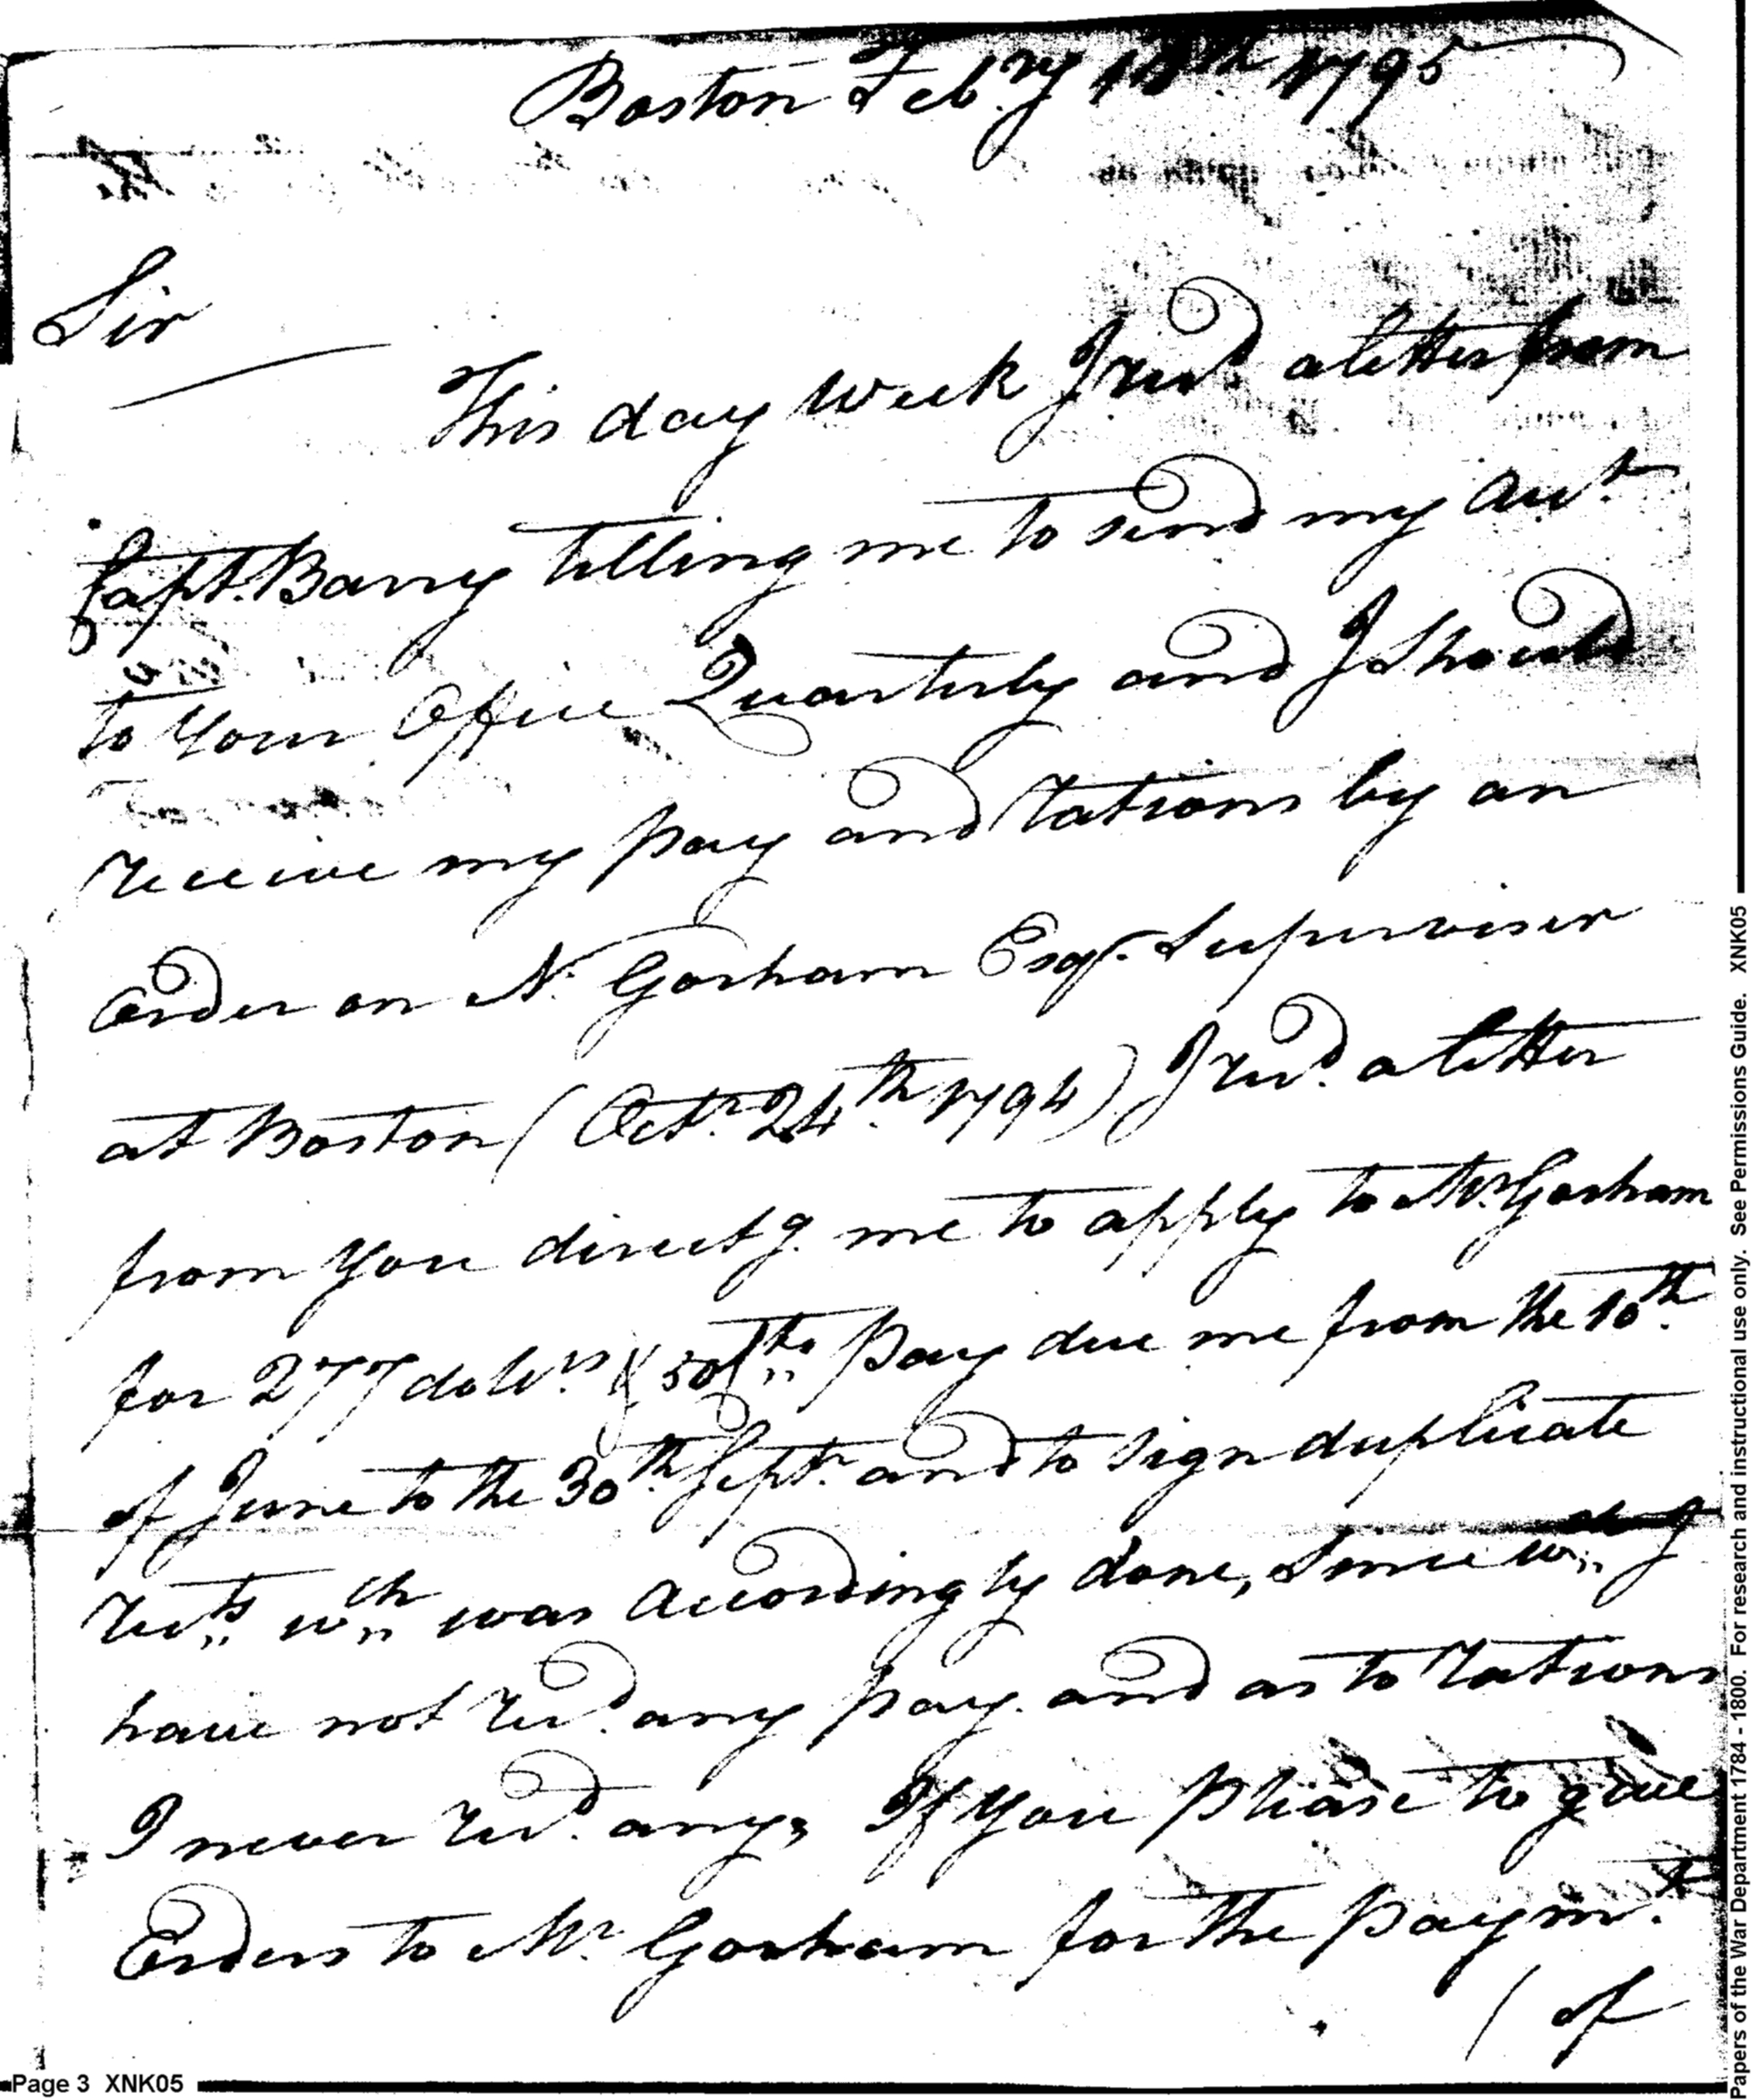 Boston Feb.ry 10th 1795
Sir
This day week I recd. a letter from
Capt. Barry telling me to send my acct.
to your Office Quarterly and I Should
receive my pay and rations by an
Order on N. Gorham Esqr. Superviser
at Boston (Octr. 24th. 1794) I recd. a letter
from you directg. me to apply to Mr. Gorham
for 277 dollrs. & 50/ths pay due me from the 10th.
of June to the 30th. Septr. and to sign duplicate
rects. wch was accordingly done, Since wch I
have not recd. any pay. and as to rations
I never recd. any, If you please to give
Orders to Mr. Gorham for the paymt.
(of
Page 3 XNK05
Papers of the War Department 1784 - 1800. For research and instructional use only. See Permissions Guide. XNK05